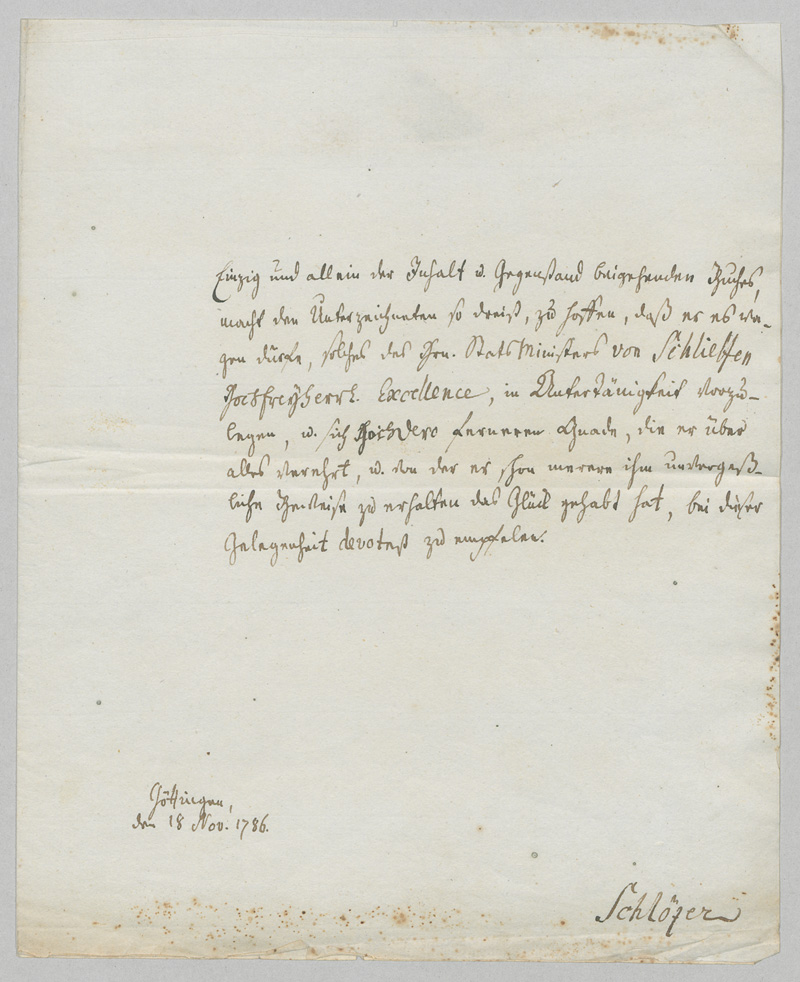 Einzig und allein der Inhalt u. Gegenstand beigehenden Buches,
macht den Unterzeichneten so dreist, zu hoffen, daß er es wa-
gen dürfe, solches des Hrn. StatsMinisters von Schlieffen
Hochfreyherrl. Excellence, in Untertänigkeit vorzu-
legen, u. sich HochDero ferneren Gnade, die er über
alles verehrt, u. von der er schon merere ihm unvergeß-
liche Beweise zu erhalten das Glück gehabt hat, bei dieser
Gelegenheit devotest zu empfelen.
Göttingen,
den 18 Nov. 1786.
Schlözer